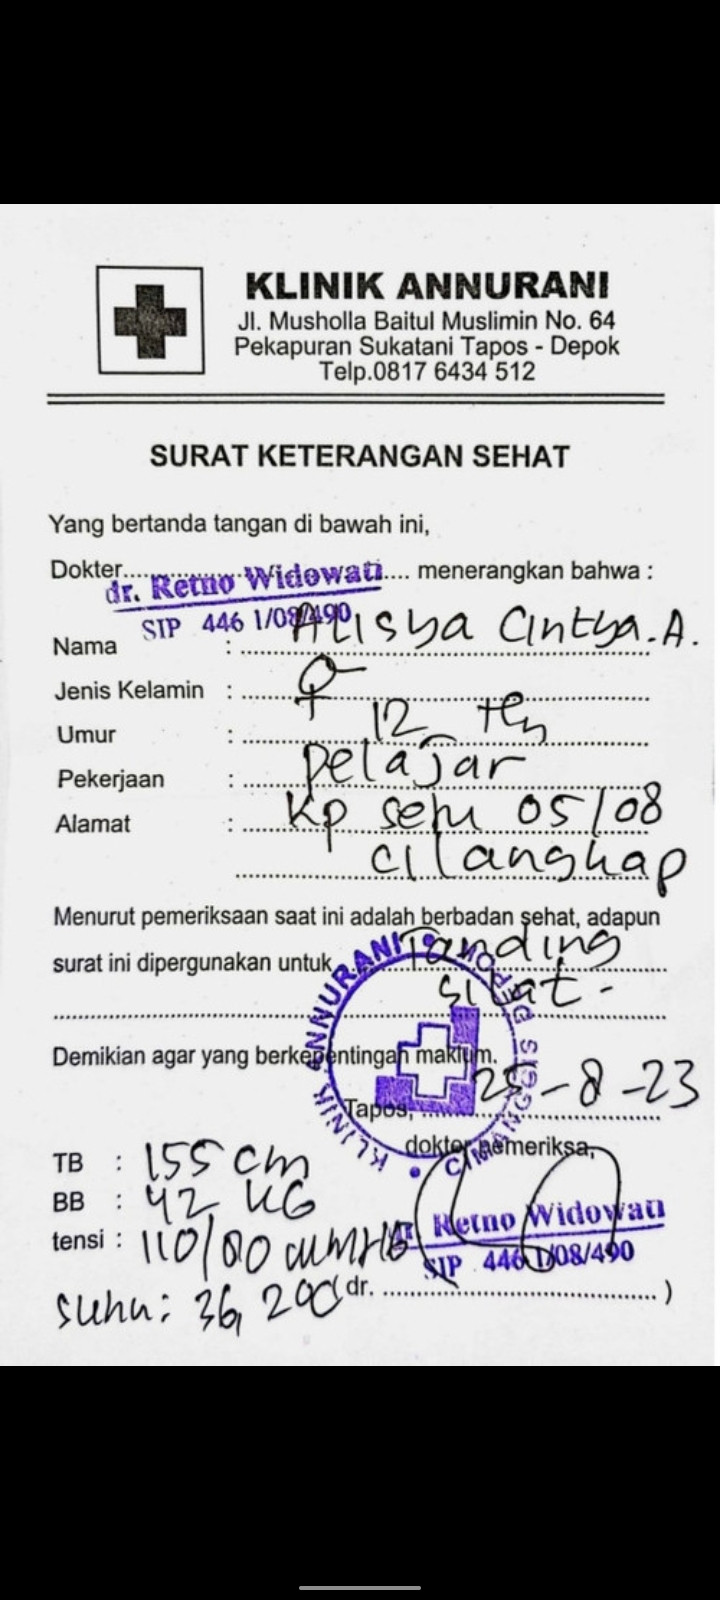 KLINIK ANNURANI
Jl. Musholla Baitul Muslimin No. 64
Pekapuran Sukatani Tapos - Depok
Telp.0817 6434 512
SURAT KETERANGAN SEHAT
Yang bertanda tangan di bawah ini,
Dokter.......... dr. Retno Widowati .... menerangkan bahwa :
SIP 446 1/08/490
Nama : Alisya Cintya. A.
Jenis Kelamin : ♀
Umur : 12 th
Pekerjaan : pelajar
Alamat : Kp 05/08
cilangkap
Menurut pemeriksaan saat ini adalah berbadan sehat, adapun
surat ini dipergunakan untuk Tanding
silat -
Demikian agar yang berkepentingan maklum.
KLINIK ANNURANI • CIMANGGIS DEPOK •
Tapos, 25-8-23
dokter pemeriksa,
TB : 155 cm
BB : 42 KG
tensi : mmHG
suhu : 36,
dr. Retno Widowati
SIP 446 1/08/490
(dr. .......................................... )